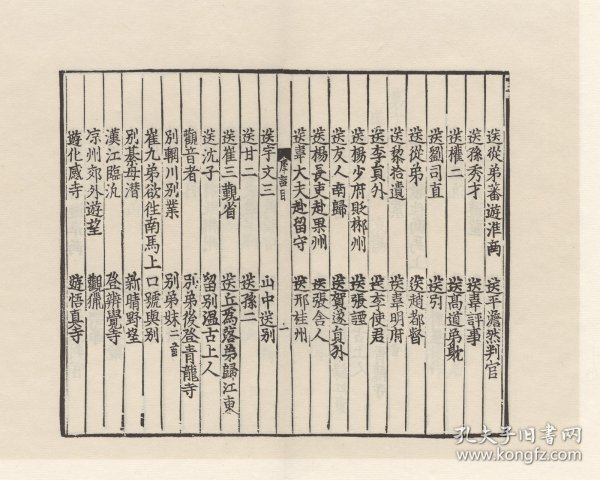 送從弟蕃遊淮南 送平澹然判官
送孫秀才 送韋評事
送權二 送高道弟耽
送劉司直 送別
送從弟 送趙都督
送黎拾遺 送韋明府
送李員外 送李使君
送楊少府貶郴州 送張諲
送友人南歸 送賀遂員外
送楊長吏赴果州 送張舍人
送韋大夫赴留守 送邢桂州
摩詰目 一
送宇文三 山中送別
送甘二 送孫二
送崔三觀省 送丘為落弟歸江東
送沈子 留別温古上人
觀音者 別弟後登青龍寺
別輞川別業 別弟妹二首
崔九弟欲徃南馬上口號與別
別綦毋潜 新晴野望
漢江臨汎 登辨覺寺
凉州郊外遊望 觀獵
遊化感寺 遊悟真寺
孔夫子旧書网
www.kongfz.com